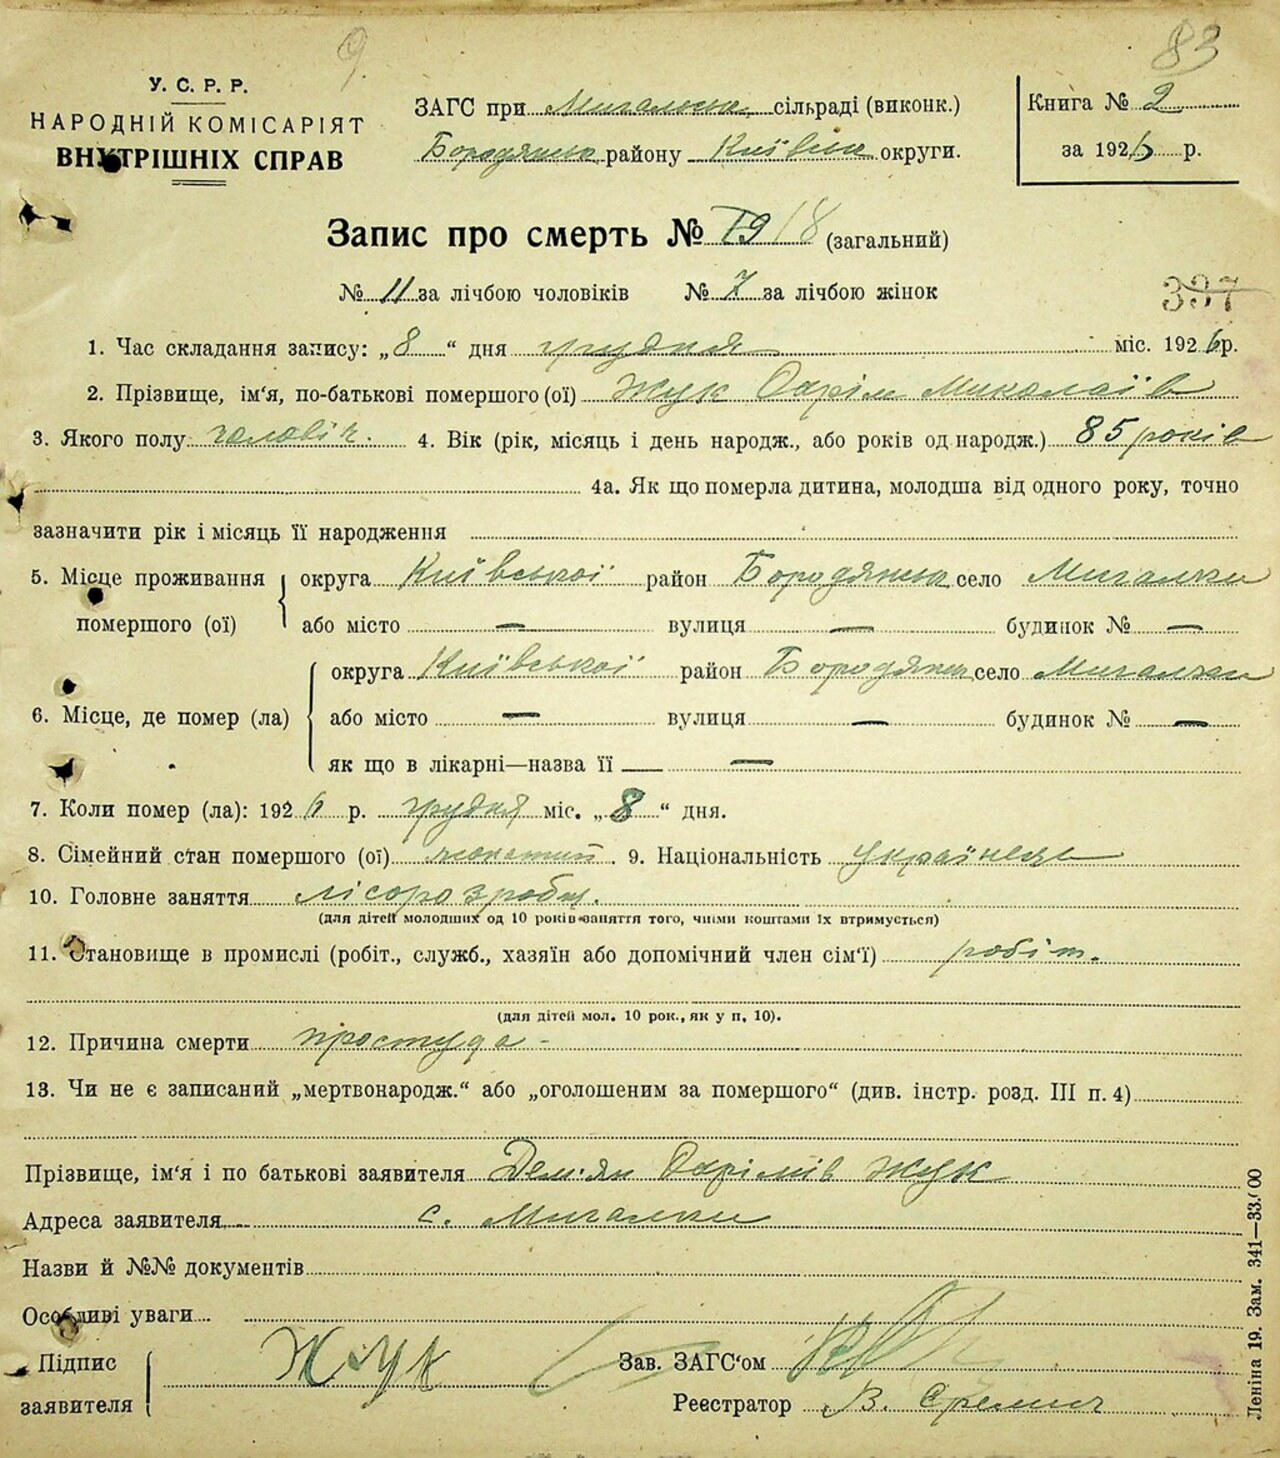 9. 83
У. С. Р. Р.
НАРОДНІЙ КОМІСАРІЯТ
ВНУТРІШНІХ СПРАВ
ЗАГС при Мигальськ. сільраді (виконк.)
Бородянськ. району Київськ. округи.
Книга № 2
за 1926 р.
Запис про смерть № 19 18 (загальний)
№ 11 за лічбою чоловіків № 7 за лічбою жінок
337
1. Час складання запису: „8“ дня грудня міс. 1926 р.
2. Прізвище, ім'я, по-батькові помершого (ої) Жук Охрім Миколаїв
3. Якого полу чоловіч. 4. Вік (рік, місяць і день народж., або років од народж.) 85 років
4а. Як що померла дитина, молодша від одного року, точно
зазначити рік і місяць її народження
5. Місце проживання помершого (ої) округа Київської район Бородянськ село Мигалки
або місто — вулиця — будинок № —
6. Місце, де помер (ла) округа Київської район Бородянськ село Мигалки
або місто — вулиця — будинок № —
як що в лікарні—назва її —
7. Коли помер (ла): 1926 р. грудня міс. „8“ дня.
8. Сімейний стан помершого (ої) жонатий. 9. Національність українець
10. Головне заняття лісорозробц.
(для дітей молодших од 10 років-заняття того, чиїми коштами їх втримується)
11. Становище в промислі (робіт., служб., хазяїн або допомічний член сім'ї) робіт.
(для дітей мол. 10 рок., як у п, 10).
12. Причина смерти простуда -
13. Чи не є записаний „мертвонародж.“ або „оголошеним за помершого“ (див. інстр. розд. III п. 4)
Прізвище, ім'я і по батькові заявителя Дем'ян Охрімів Жук
Адреса заявителя с. Мигалки
Назви й №№ документів
Особливі уваги
Підпис заявителя Жук Зав. ЗАГС'ом
Реєстратор В.
Леніна 19. Зам. 341—33.000